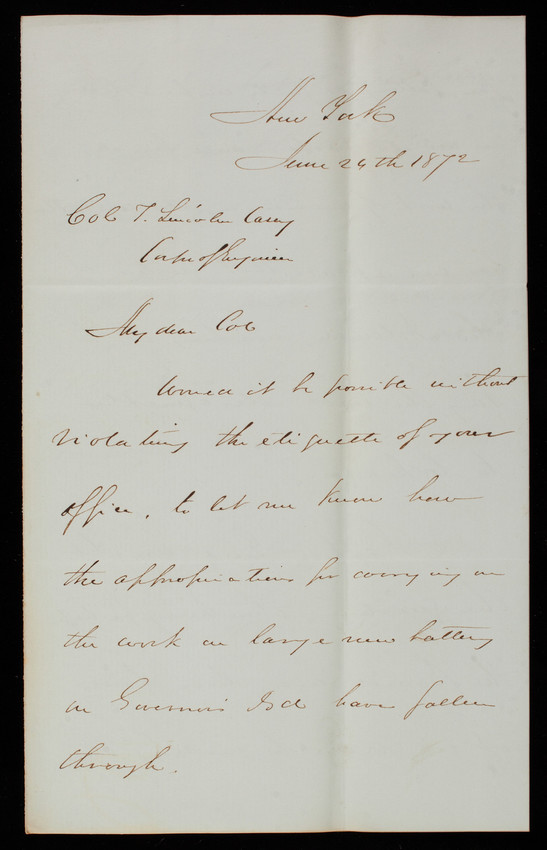 New York
June 24th 1872
Col T. Lincoln Casey
Corps of Engineers
My dear Col
Would it be possible without
violating the etiquette of your
office, to let me know how
the appropriations for carrying on
the work on large new battery
on Governors Isd have fallen
through.